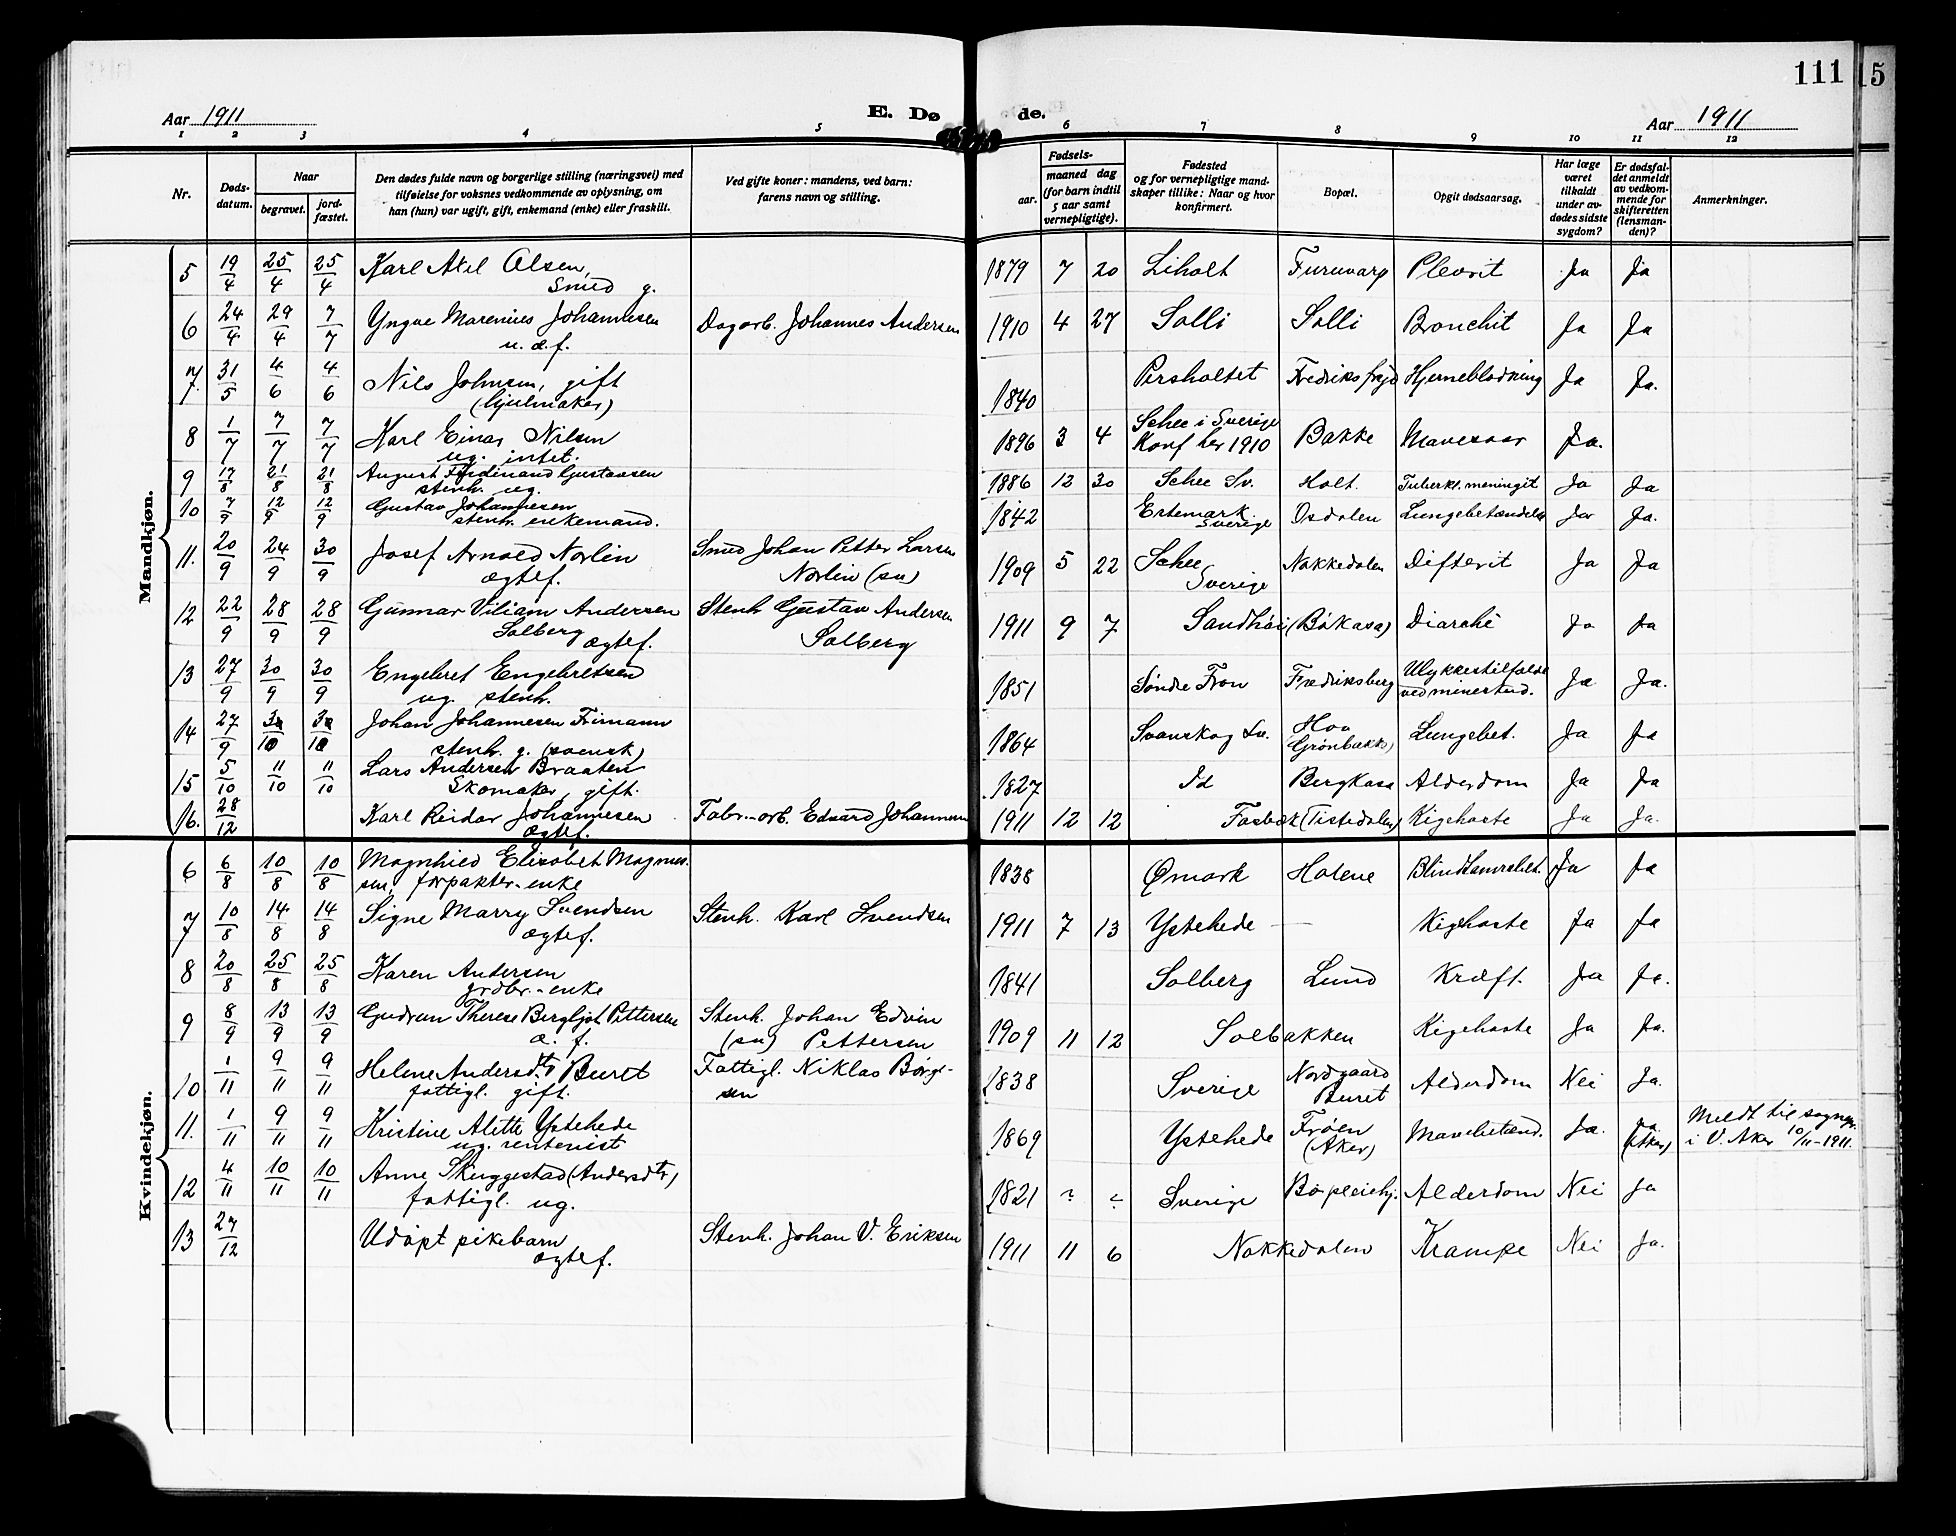 111
15
Aar 1911
E. Dø
de.
Aar 1911
1 2 3 4 5 6 7 8 9 10 11 12
Nr.
Døds-
datum.
Naar
begravet.
jord-
fæstet.
Den dødes fulde navn og borgerlige stilling (næringsvei) med
tilføielse for voksnes vedkommende av oplysning, om
han (hun) var ugift, gift, enkemand (enke) eller fraskilt.
Ved gifte koner: mandens, ved barn:
farens navn og stilling.
aar.
Fødsels-
maaned dag
(for barn indtil
5 aar samt
vernepligtige).
Fødested
og for vernepligtige mand-
skaper tillike: Naar og hvor
konfirmert.
Bopæl.
Opgit dødsaarsag.
Har læge
været
tilkaldt
under av-
dødes sidste
sygdom?
Er dødsfal-
det anmeldt
av vedkom-
mende for
skifteretten
(lensman-
den)?
Anmerkninger.
Mandkjøn.
5 19/4 25/4 25/4 Karl Axel Olsen, 1879 7 20 Liholt Furuvarp Plevrit Ja Ja
Smed g.
6 24/4 29/4 7/7 Yngve Marenius Johannesen Dagarb. Johannes Andersen 1910 4 27 Solli Solli Bronchit Ja Ja
u. æ. f.
7. 31/5 4/6 4/6 Nils Johnsen, gift 1840 Persholtet Fredriksfryd Hjerneblødning Ja Ja.
(hjulmaker)
8 1/7 7/7 7/7 Karl Einar Nilsen 1896 3 4 Schee i Sverige Bakke Mavesaar Ja.
ug. intet. Konf her 1910
9 17/8 21/8 21/8 August Ferdinand Gustavsen 1886 12 30 Schee Sv. Holt. Tuberkl. meningit Ja Ja
stenh. ug.
10 7/9 12/9 12/9 Gustav Johannesen 1842 Ertemark Osdalen Lungebetændelse Ja Ja.
stenh. enkemand. Sverige
11. 20/9 24/9 30/9 Josef Arnold Norlin Smed Johan Petter Larsen 1909 5 22 Schee Nakkedalen Difterit Ja Ja
ægtef. Norlin (sv) Sverige
12 22/9 28/9 28/9 Gunnar Viliam Andersen Stenh Gustav Andersen 1911 9 7 Sandhøi (Bökasa) Diarché Ja Ja
Solberg ægtef. Solberg
13 27/9 30/9 30/9 Engebret Engebretsen 1851 Søndre Fron Fredriksberg Ulykkestilfælde Ja Ja.
ug. stenh. ved minerskud.
14 27/9 3/10 3/10 Johan Johannesen Frimann 1864 Svanskog Sv. Hov Lungebet. Ja Ja
stenh. g. (svensk) Grönbakk)
15 5/10 11/10 11/10 Lars Andersen Braaten 1827 Id Bergkasa Alderdom Ja Ja
Skomaker, gift.
16. 28/12 Karl Reidar Johannesen Fabr.-arb. Edvard Johannesen 1911 12 12 Fosbæk (Tistedalen) Kigehoste Ja Ja.
Ægtef.
Kvindekjøn.
6 6/8 10/8 10/8 Magnhild Elisabet Magnus- 1838 Ømark Holene Blindtarmsbet. Ja Ja
sen, forpakter-enke
7 10/8 14/8 14/8 Signe Marry Svendsen Stenh. Karl Svendsen 1911 7 13 Ystehede — Kigehoste Ja Ja
ægtef.
8 20/8 25/8 25/8 Karen Andersen 1841 Solberg Lund Kræft. Ja Ja.
grdbr.-enke
9 8/9 13/9 13/9 Gudrun Therese Bergljot Pettersen Stenh. Johan Edvin 1909 11 12 Solbakken Kigehoste Ja Ja.
æ. f. (sv) Pettersen
10 1/11 9/11 9/11 Helene Andersdtr Buret Fattigl. Niklas Börge- 1838 Sverige Nordgaard Alderdom Nei Ja.
fattigl. gift. sen Buret
11. 1/11 9/11 9/11 Kristine Alette Ystehede 1869 Ystehede Frøen Mavebetænd. Ja. Ja. Meldt til sognepr.
ug. rentenist (Aker) (Aker) i V. Aker 10/11-1911.
12 4/11 10/11 10/11 Anne Skuggestad (Andersdtr) 1821 ? ? Sverige Bøpleiehj. Alderdom Nei Ja
fattigl. ug.
13 27/12 Udöpt pikebarn Stenh. Johan V. Eriksen 1911 11 6 Nakkedalen Krampe Nei Ja.
ægtef.